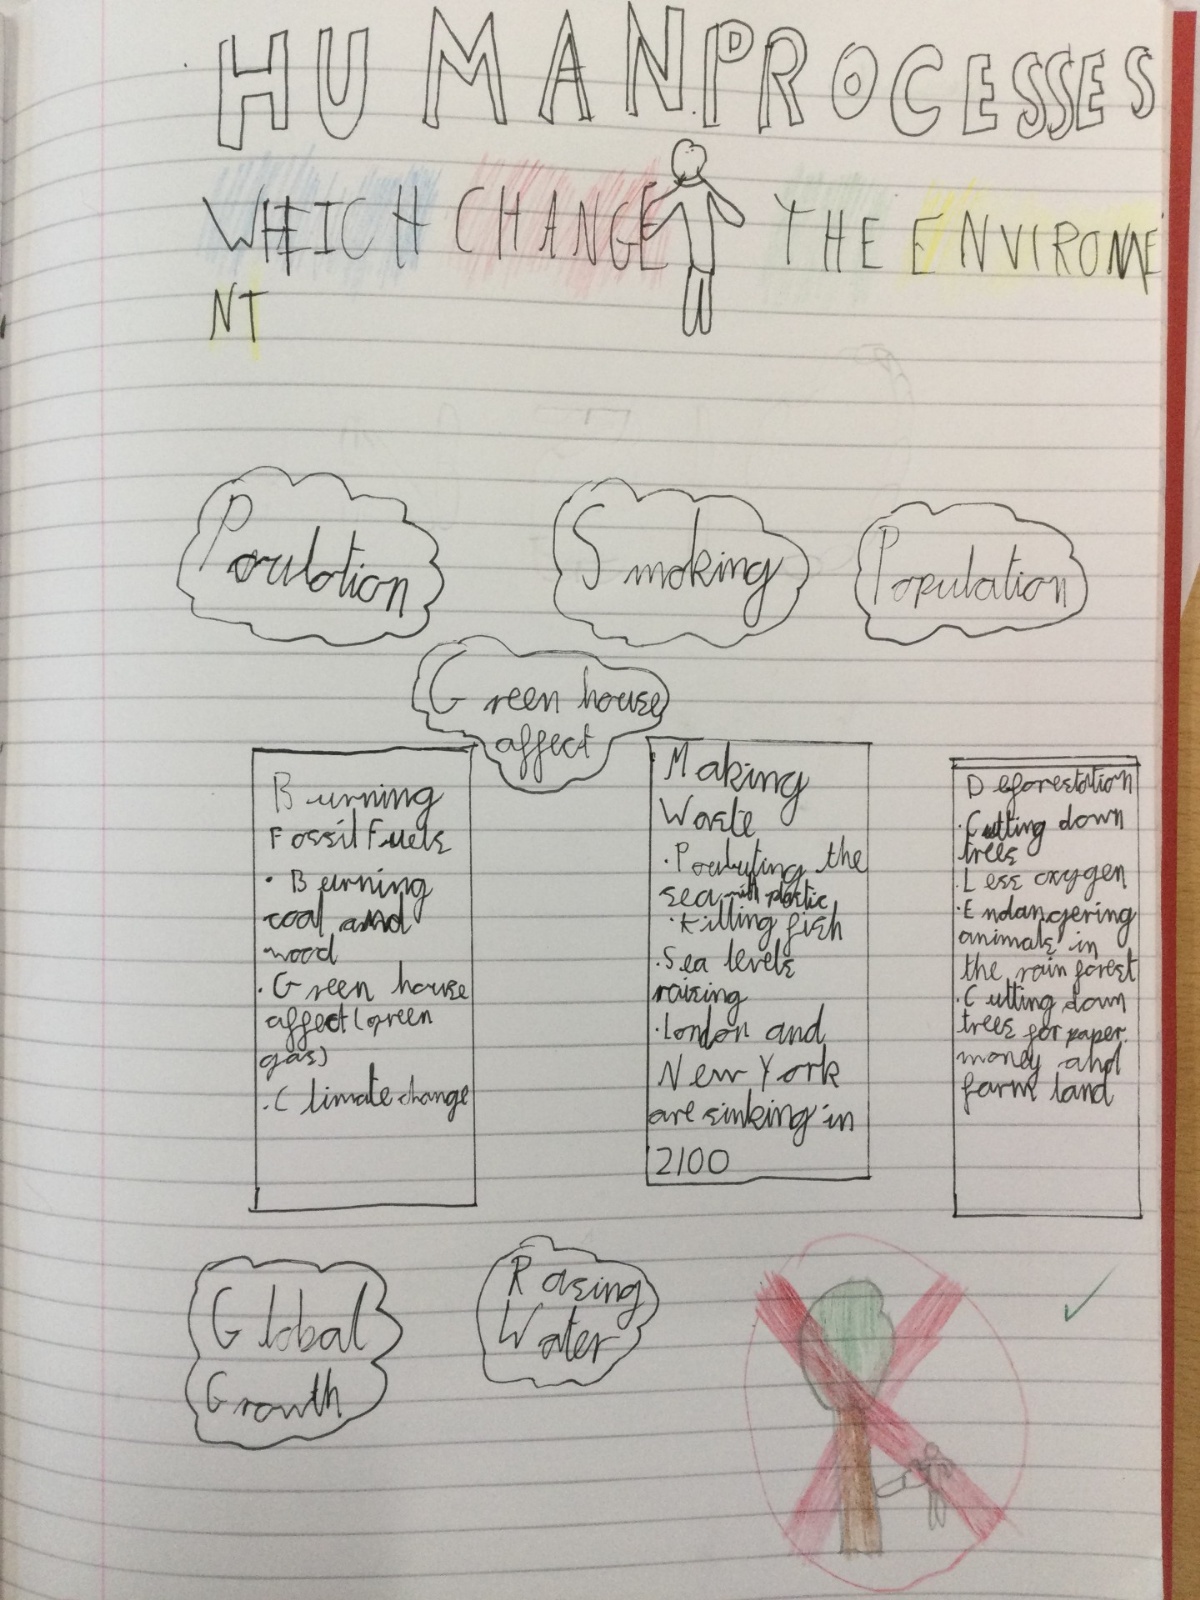 HUMAN PROCESSES
WHICH CHANGE THE ENVIRONME
NT
Poulotion
Smoking
Population
Green house
affect
Burning
Fossil Fuels
· Burning
coal and
wood
· Green house
affect (green
gas)
· Climate change
Making
Waste
· Pouluting the
sea with plastic
· Killing fish
· Sea levels
raising
· London and
New York
are sinking in
2100
Deforestation
· Cutting down
trees
· Less oxygen
· Endangering
animals in
the rain forest
· Cutting down
trees for paper.
money and
farm land
Global
Growth
Rasing
Water